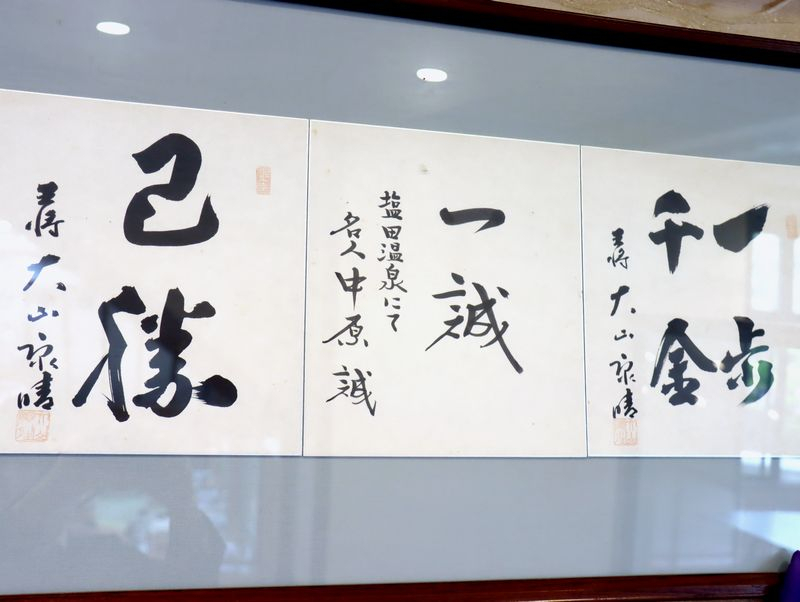 一歩
千金
王将 大山康晴
一誠
塩田温泉にて
名人 中原誠
己勝
王将 大山康晴